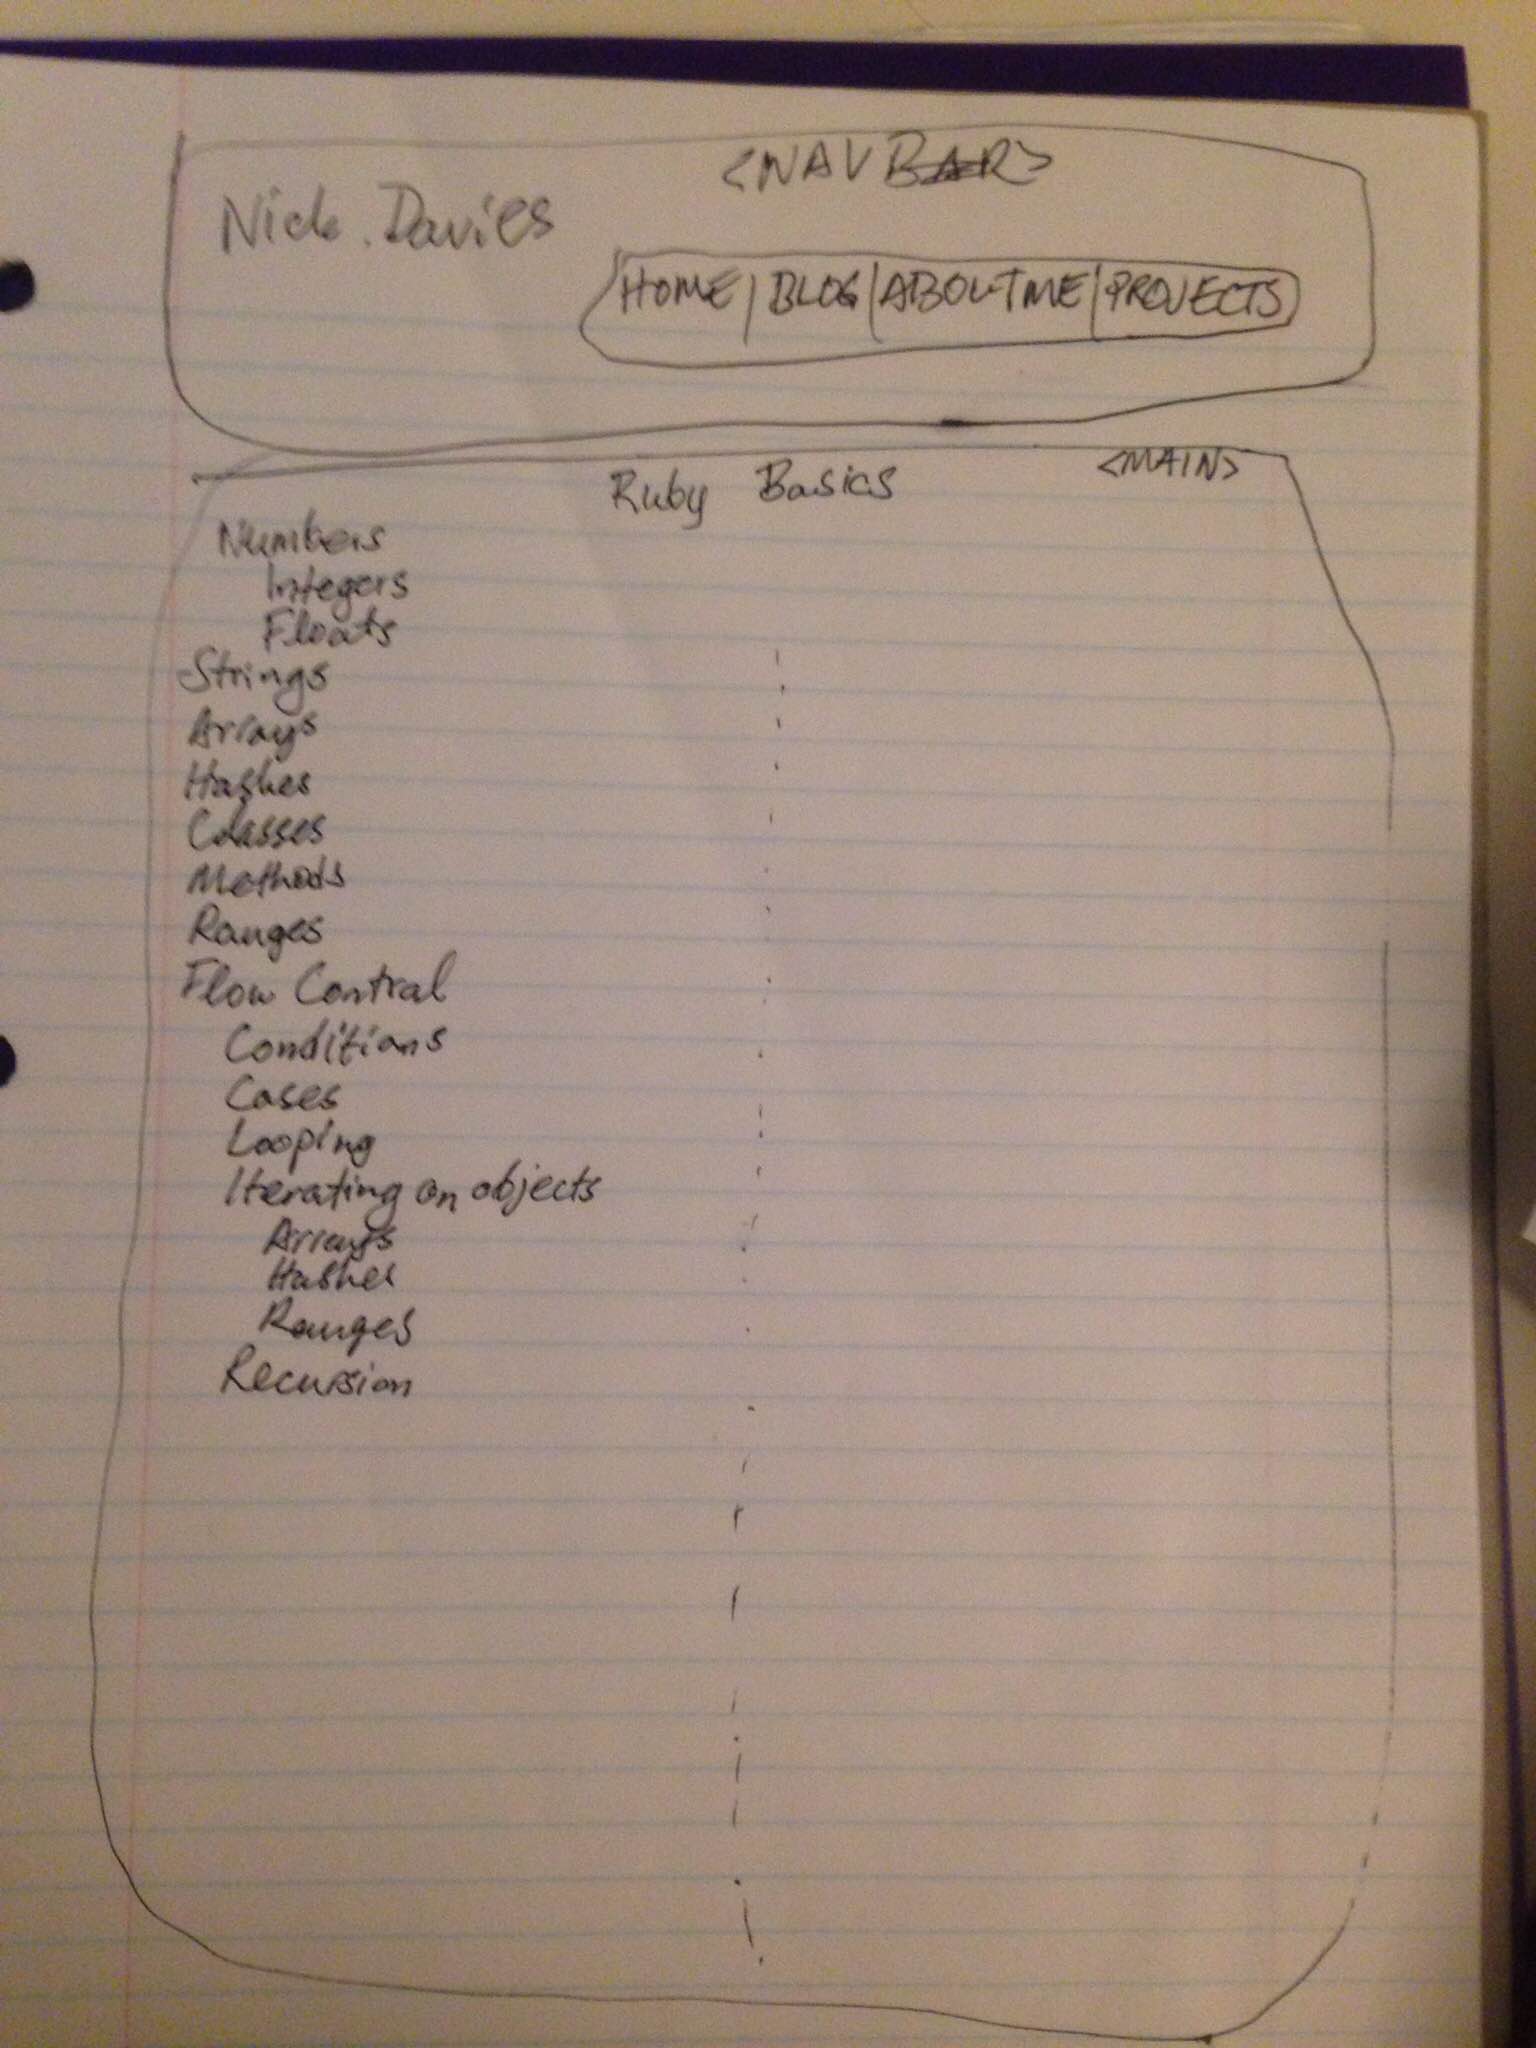 <NAV BAR>
Nick.Davies
HOME|BLOG|ABOUTME|PROJECTS
<MAIN>
Ruby Basics
Numbers
Integers
Floats
Strings
Arrays
Hashes
Classes
Methods
Ranges
Flow Control
Conditions
Cases
Looping
Iterating on objects
Arrays
Hashes
Ranges
Recursion